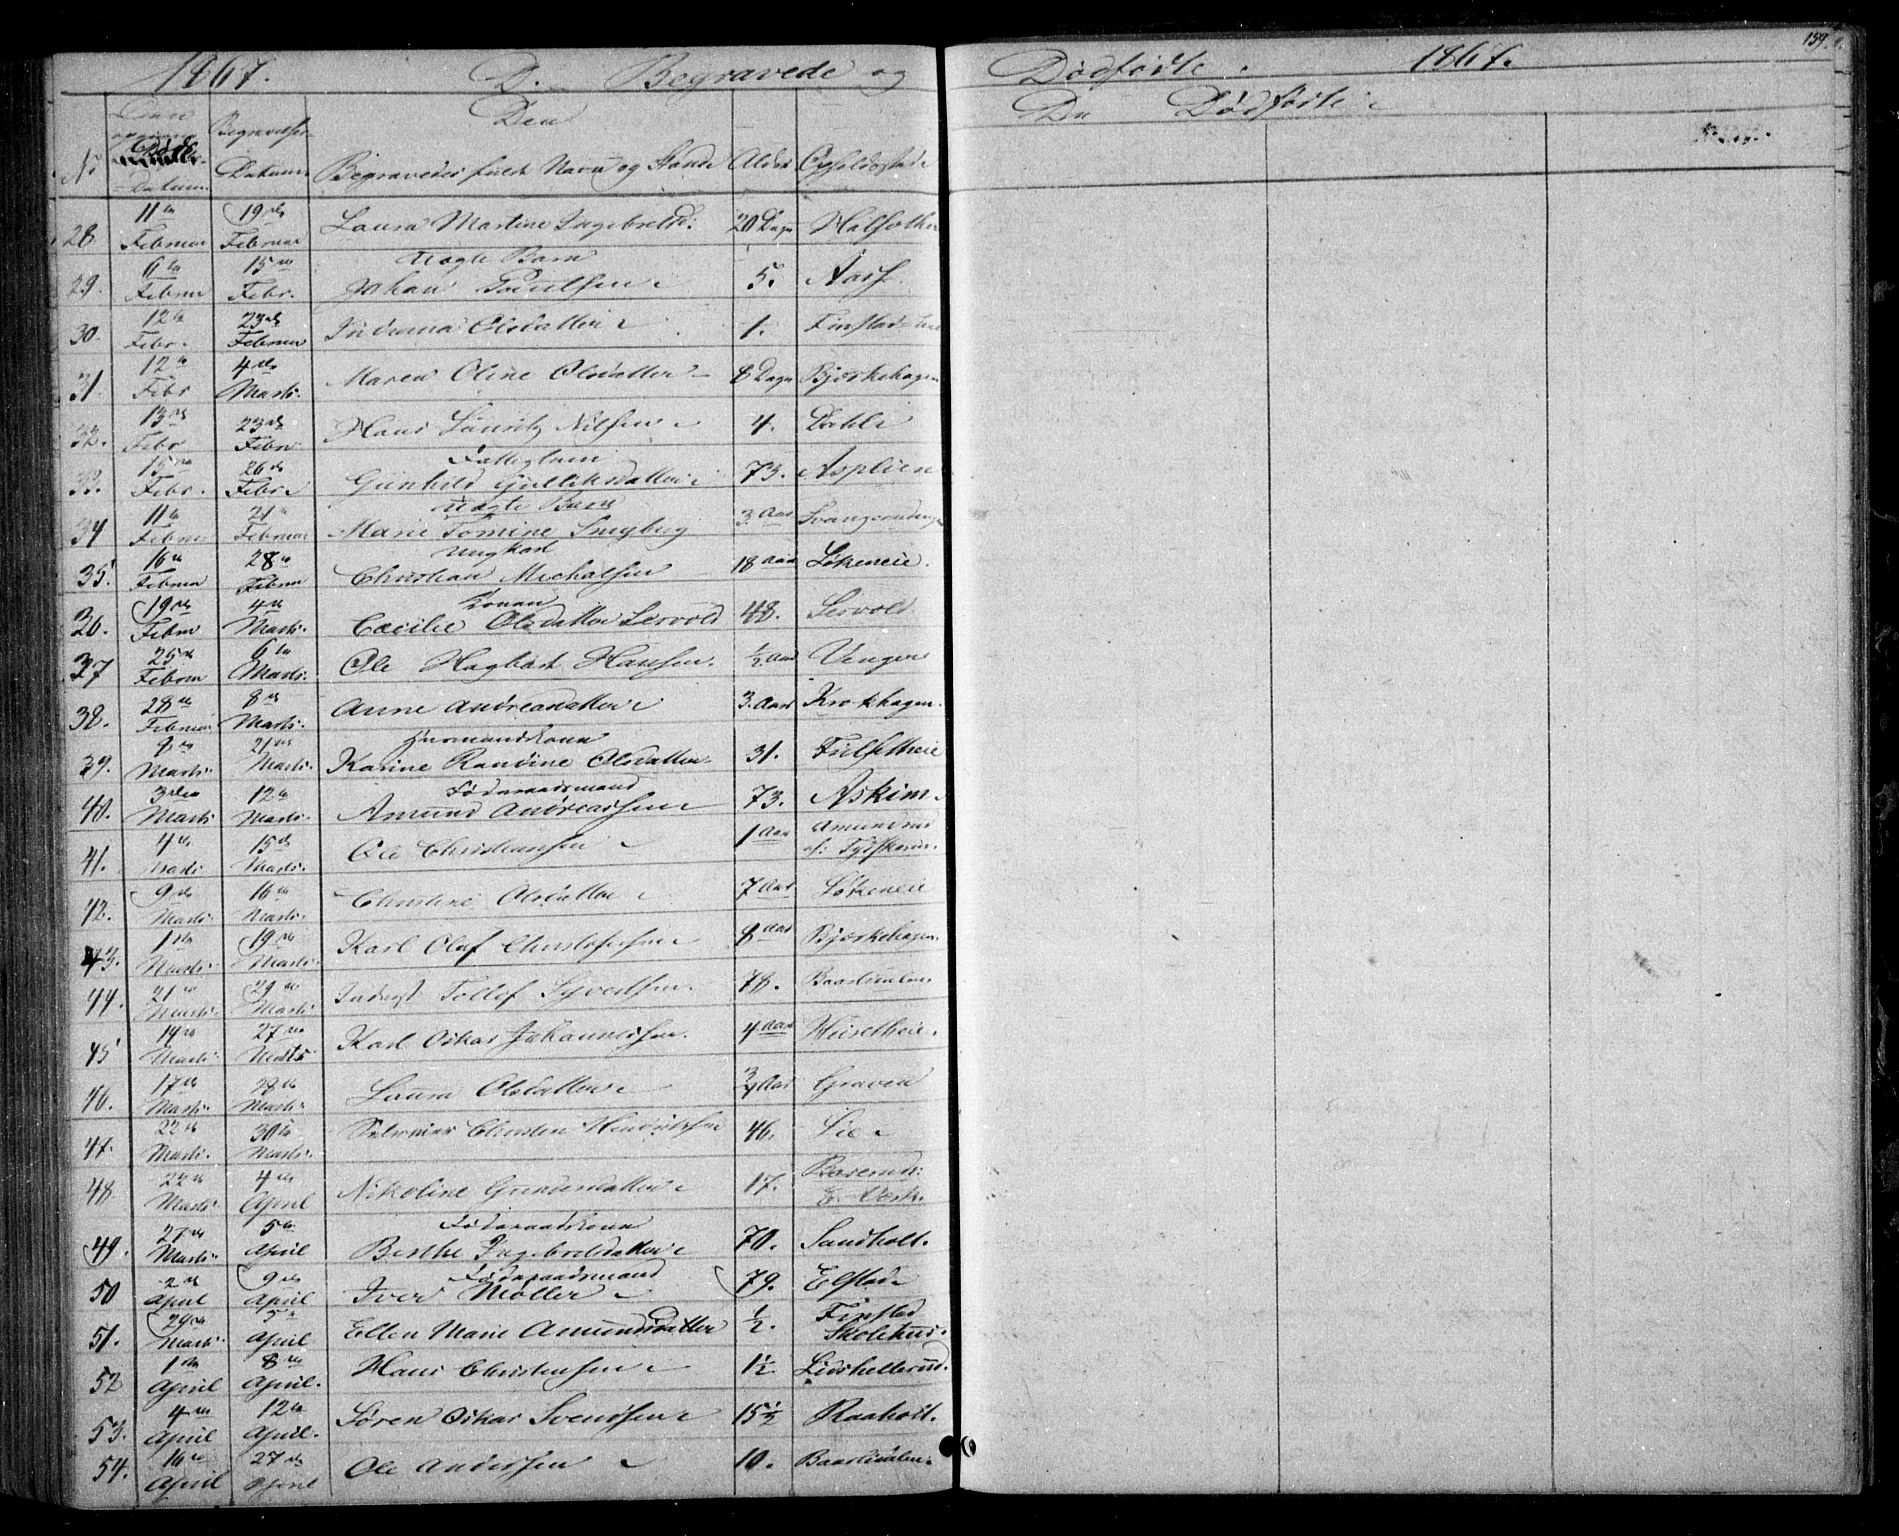 1867. D. Begravede og Dødfødte. 1867. 159.
De Dødfødte
No Døds Datum. Begravelses Datum Den Begravedes fulde Navn og Stand Alder Opholdssted
28. 11te Februar 19de Februar Laura Martine Ingebretsd: 20 Dage
Uægte Barn
29. 6te Februar 15de Febr. Johan Paulsen 5. Aas
30. 12te Febr. 23de Februar Indiana Olsdatter 1. Finstad
31. 12te Febr 4de Marts. Maren Oline Olsdatter 8 Dage Bjerkehagen
32. 13de Febr 23de Febr Hans Lauritz Nilsen 4. Dahl
Fattiglem
33. 15de Febr. 26de Febr. Gunhild Gulliksdatter 73. Asplien
Uægte Barn
34 11te Februar 21de Februar Marie Tomine Smyberg 3. Aar
Ungkarl
35. 16de Februar 28de Februar Christian Michalsen 18 Aar Løkeneie.
Konen
36. 19de Febru 4de Marts. Cæcilie Olsdatter Lervold 48. Lervold
37 25de Februar 6te Marts. Ole Hagbart Hansen. 1/2 Aar Vengen
38. 28de Februar 8de Marts. Anne Andreasdatter 3. Aar Krokhagen.
Huusmandskone
39. 8de Marts. 21de Marts. Karine Randine Olsdatter 31.
Føderaadsmand
40. 3die Marts 12te Marts. Amund Andreassen 73. Askim.
41. 4de Marts 15de Marts. Ole Christiansen 1 Aar Amundrud
42. 9de Marts. 16de Marts. Christine Olsdatter 7 Aar Løkeneie
43. 1ste Marts. 19de Marts. Karl Olaf Christofersen 8 Aar Bjerkehagen.
44. 21de Marts. 29de Marts. Inderst Tollef Syvertsen. 78. Baarlidalen
45 14de Marts. 27de Marts Karl Oskar Johannessen. 4 Aar
46. 17de Marts. 28de Marts. Laura Olsdatter 3/4 Aar Graven
47. 22de Marts. 30te Marts. Christen Hendriksen 46. Lie
48. 22de Marts. 4de April Nikoline Gundersdatter 17.
Føderaadskone
49. 27de Marts. 5te April Berthe Ingebretsdatter 70. Sandholt.
Føderaadsmand
50 2de April 9de April Iver Møller 79. Elstad
51. 29de Marts. 5te April Ellen Marie Amundsdatter 1/2. Finstad Skolehus.
52 1ste April 8de April. Hans Christensen 1 1/2
53. 4de April 12te April. Søren Oskar Svendsen 15 1/2 Raaholt.
54. 16de April 27de April Ole Andersen 10. Baarlidalen.